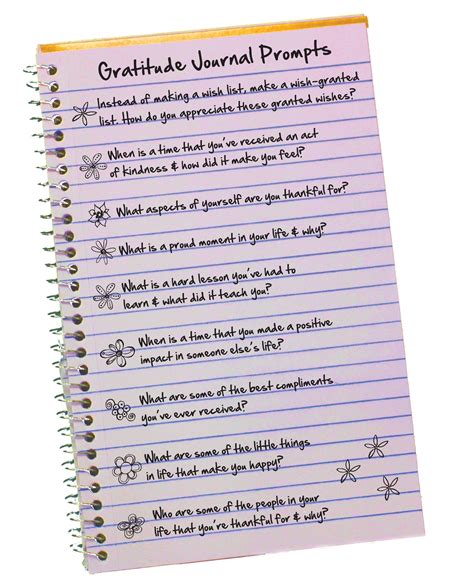 Gratitude Journal Prompts
Instead of making a wish list, make a wish-granted
list. How do you appreciate these granted wishes?
When is a time that you've received an act
of kindness & how did it make you feel?
What aspects of yourself are you thankful for?
What is a proud moment in your life & why?
What is a hard lesson you've had to
learn & what did it teach you?
When is a time that you made a positive
impact in someone else's life?
What are some of the best compliments
you've ever received?
What are some of the little things
in life that make you happy?
Who are some of the people in your
life that you're thankful for & why?